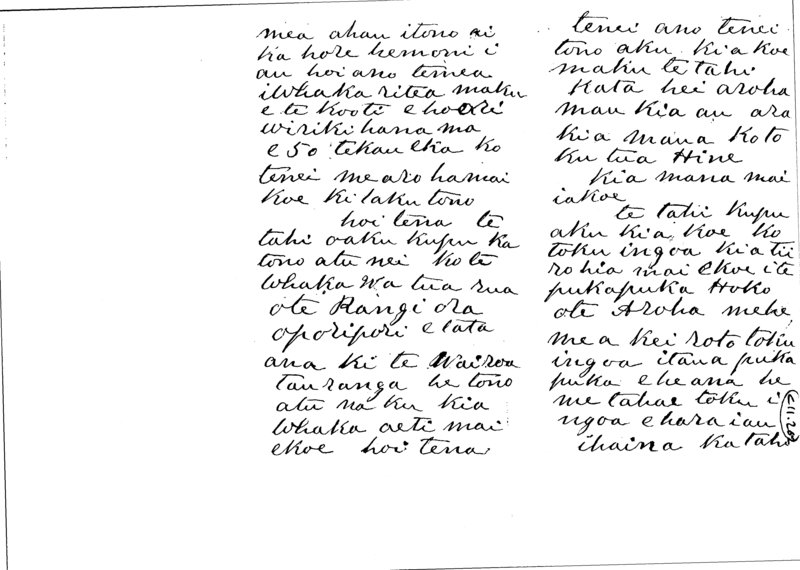 mea ahau itono ai
ka hore hemoni i
au hoi ano temea
iwhaka ritea maku
e te kooti ehoori
wirikihana ma
e 50 tekau eka ko
tenei me aro hamai
koe ki taku tono
hoi tena te
tahi oaku kupu ka
tono atu nei ko te
whaka wa tua rua
ote Rangi ora
oporipori e tata
ana ki te Wairoa
tauranga he tono
atu na ku kia
whaka aeti mai
ekoe hoi tena
tenei ano tenei
tono aku kia koe
maku te tahi
Kata hei aroha
mau kia au ara
kia mana koto
ku tua Hine
kia mana mai
iakoe
te tahi kupu
aku kia koe ko
toku ingoa kia tii
ro hia mai ekoe ite
pukapuka Hoko
ote Aroha mehe
mea kei roto toku
ingoa itaua puka
puka ehe ana he
me tahae toku i
ngoa ehara iau
ihaina ka taho